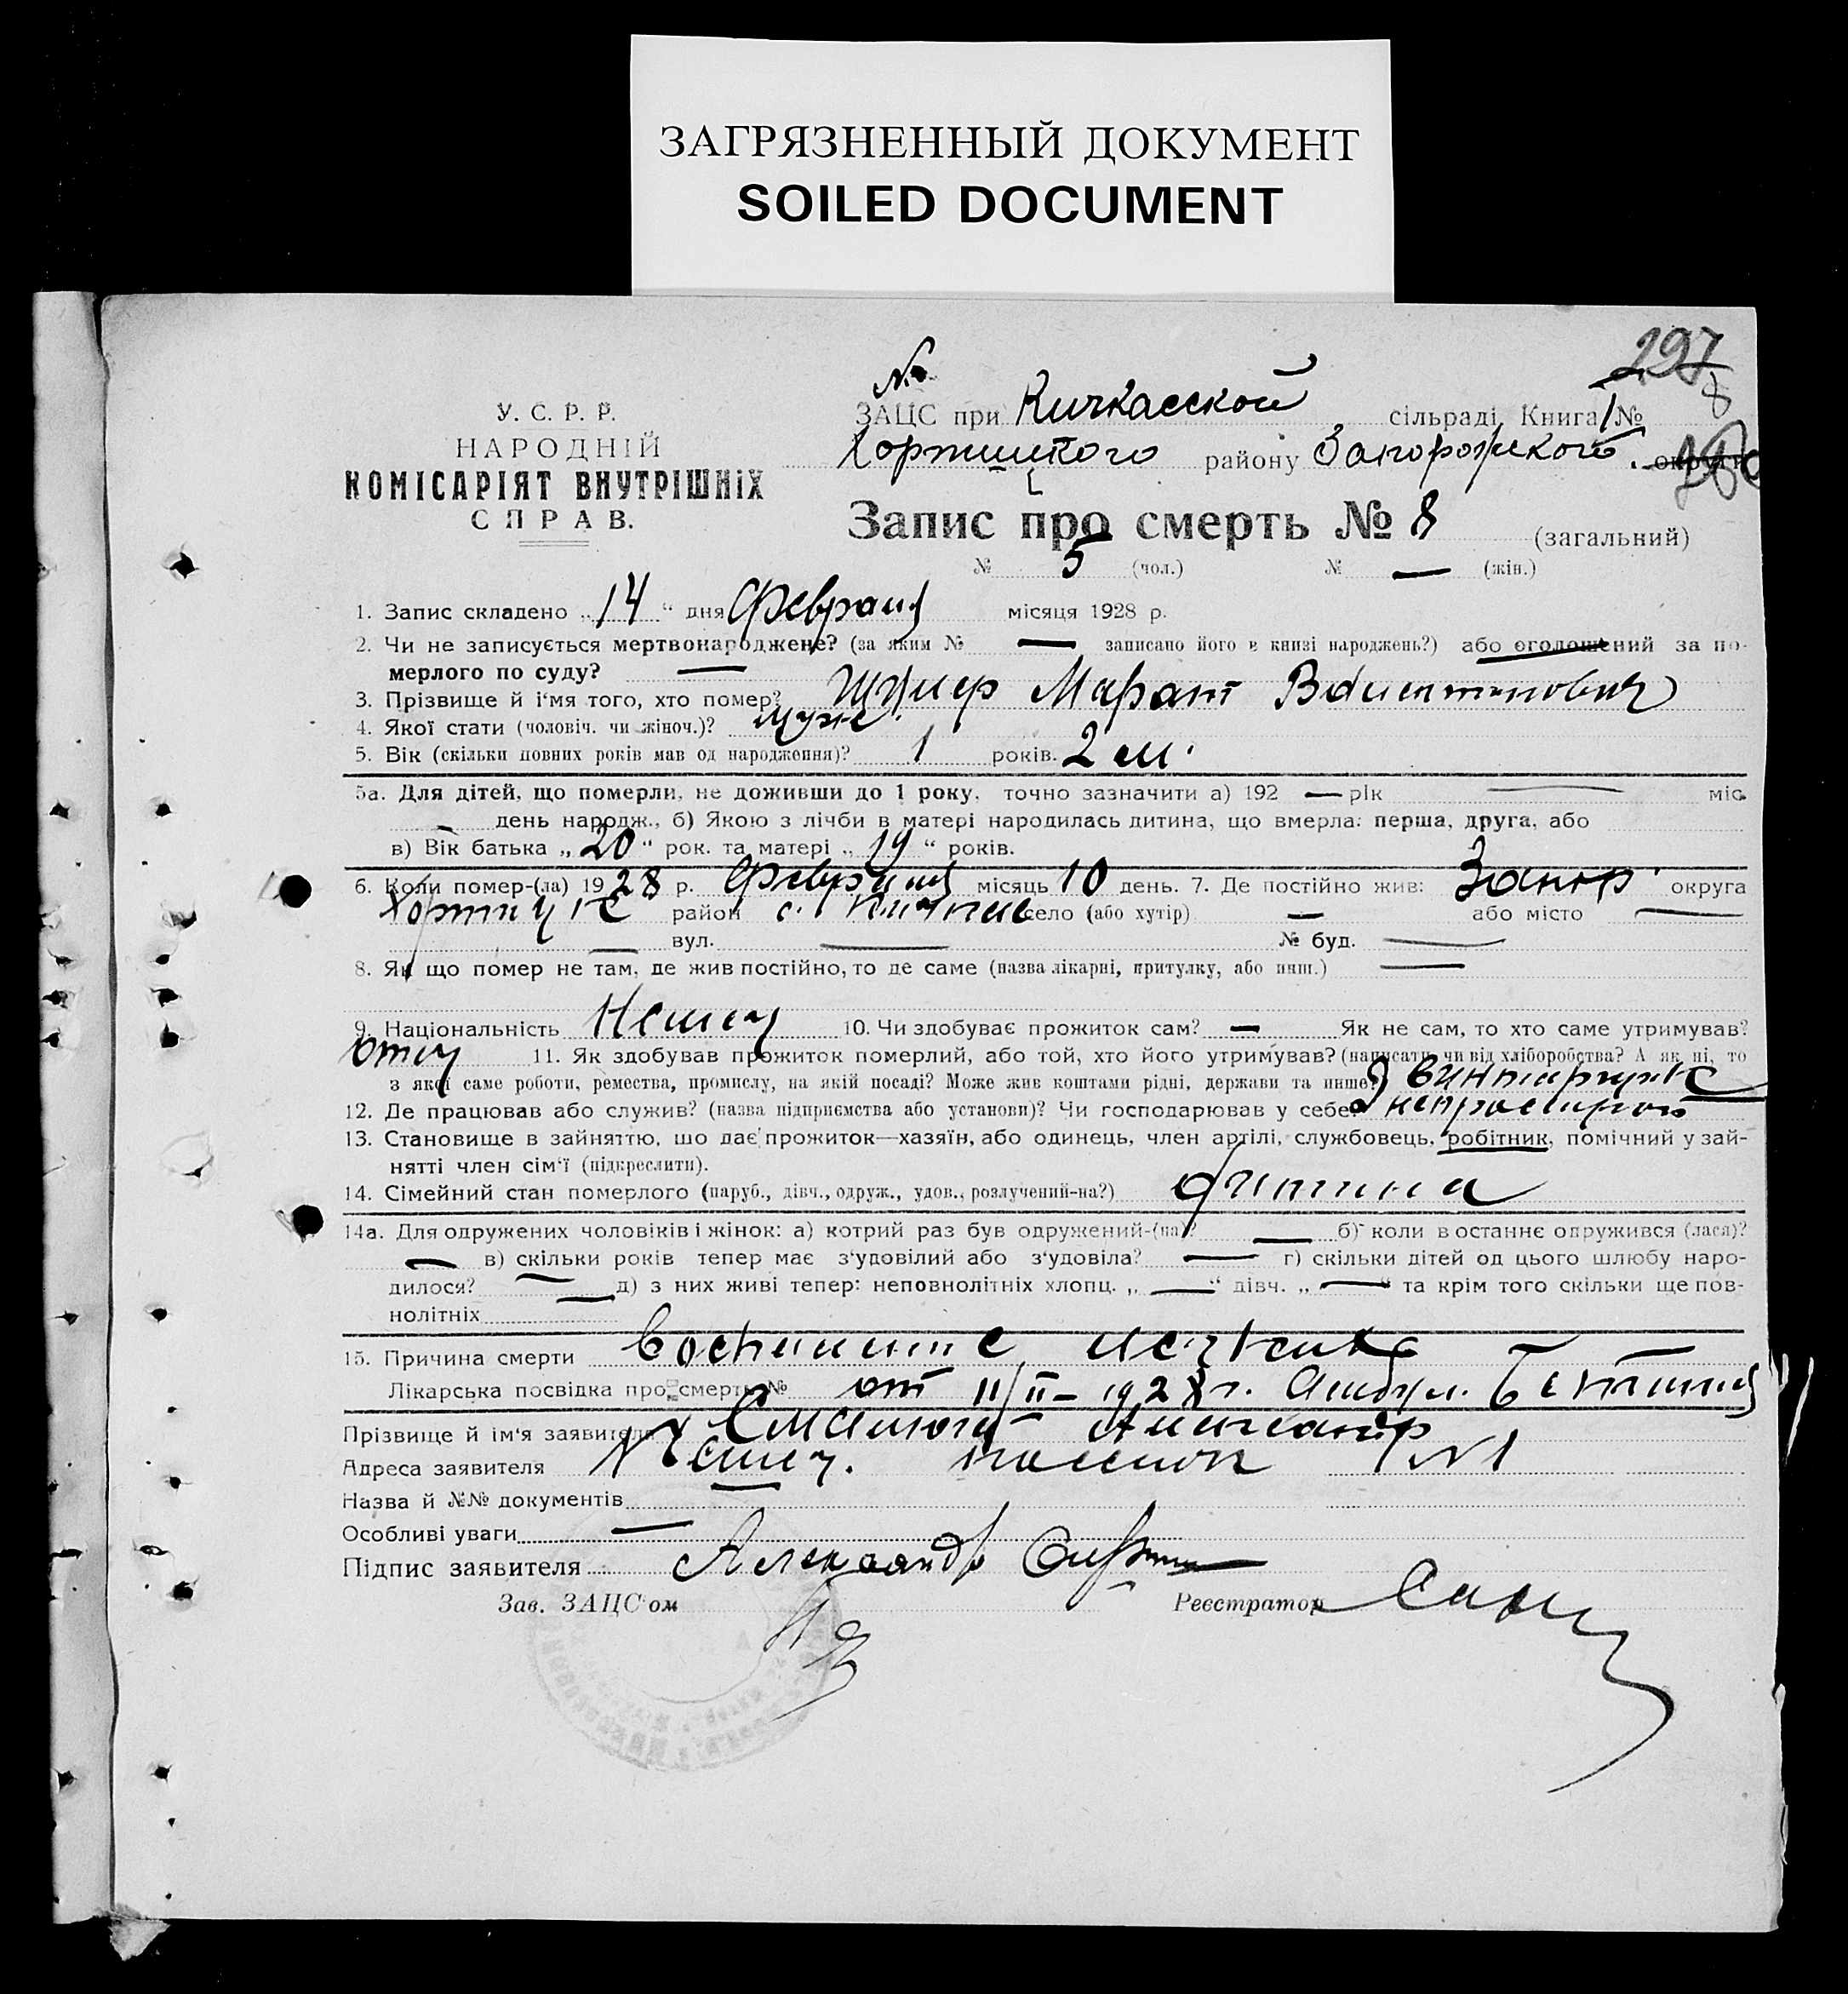 ЗАГРЯЗНЕННЫЙ ДОКУМЕНТ
SOILED DOCUMENT
297
8
У. С. Р. Р.
НАРОДНІЙ
КОМІСАРІЯТ ВНУТРІШНІХ
СПРАВ.
ЗАЦС при Кичкасской сільраді Книга 1 №
Хортицкого району Запорожского округи
Запис про смерть № 8 (загальний)
№ 5 (чол.) № — (жін.)
1. Запис складено „14“ дня Февраля місяця 1928 р.
2. Чи не записується мертвонароджене? (за яким № — записано його в книзі народжень?) або оголошений за по-
мерлого по суду? —
3. Прізвище й і'мя того, хто помер?
4. Якої стати (чоловіч. чи жіноч.)? муже.
5. Вік (скільки повних років мав од народження)? 1 років. 2 м.
5а. Для дітей, що померли, не доживши до 1 року, точно зазначити а) 192 — рік — міс.
— день народж., б) Якою з лічби в матері народилась дитина, що вмерла: перша, друга, або
в) Вік батька „20“ рок. та матері „19“ років.
6. Коли помер-(ла) 1928 р. Февраля місяць 10 день. 7. Де постійно жив: Запор. округа
Хортиц район с. Кичкас село (або хутір) — або місто —
— вул. — № буд. —
8. Як що помер не там, де жив постійно, то де саме (назва лікарні, притулку, або инш.) —
9. Національність Немец 10. Чи здобуває прожиток сам? — Як не сам, то хто саме утримував?
отец 11. Як здобував прожиток померлий, або той, хто його утримував? (написати чи від хліборобства? А як ні, то
з якої саме роботи, ремества, промислу, на якій посаді? Може жив коштами рідні, держави та инше?)
12. Де працював або служив? (назва підприємства або установи)? Чи господарював у себе?
13. Становище в зайняттю, що дає прожиток—хазяїн, або одинець, член артілі, службовець, робітник, помічний у зай-
нятті член сім'ї (підкреслити).
14. Сімейний стан померлого (паруб., дівч., одруж., удов., розлучений-на?) дитина
14а. Для одружених чоловіків і жінок: а) котрий раз був одружений-(на)? — б) коли в останнє одружився (лася)?
— в) скільки років тепер має з'удовілий або з'удовіла? — г) скільки дітей од цього шлюбу наро-
дилося? — д) з них живі тепер: неповнолітніх хлопц. „—“ дівч. „—“ та крім того скільки ще пов-
нолітніх —
15. Причина смерти Воспаление легких
Лікарська посвідка про смерть № от 11/II–1928 г. Амбул.
Прізвище й ім'я заявителя Александр
Адреса заявителя поселок №1
Назва й №№ документів —
Особливі уваги —
Підпис заявителя Александр
Зав. ЗАЦС'ом Реєстратор